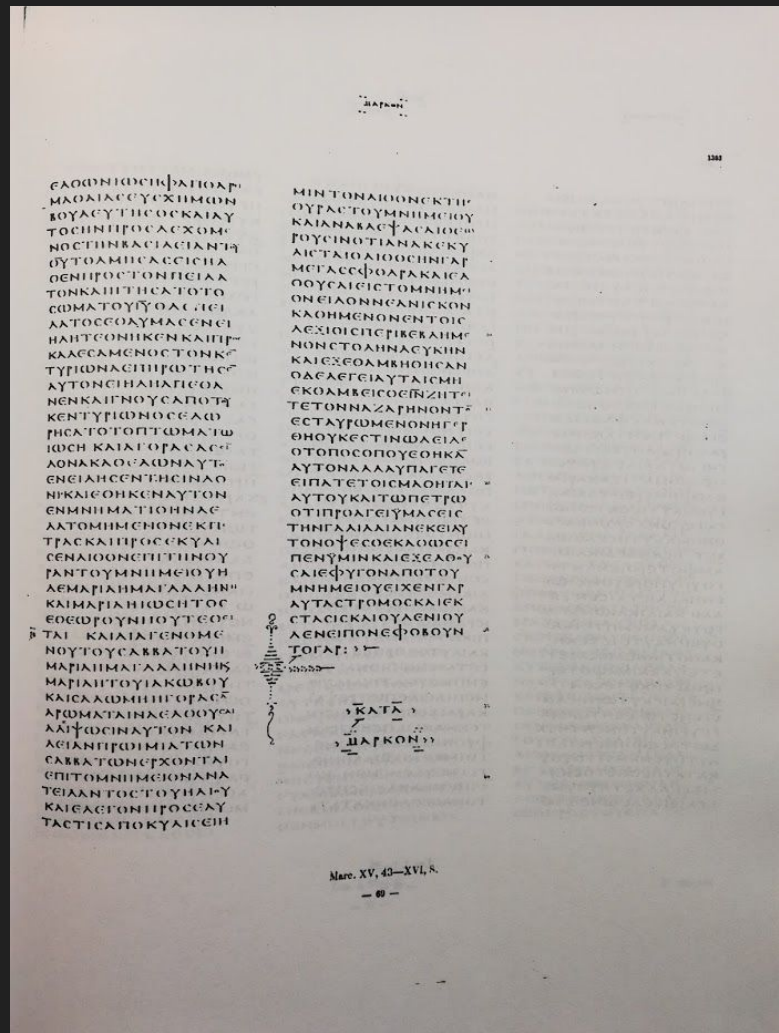 ΜΑΡΚΟΝ
1303
ΕΛΘΩΝΙΩϹΗΦΑΠΟΑΡΙ
ΜΑΘΑΙΑϹΕΥϹΧΗΜΩΝ
ΒΟΥΛΕΥΤΗϹΟϹΚΑΙΑΥ
ΤΟϹΗΝΠΡΟϹΔΕΧΟΜΕ
ΝΟϹΤΗΝΒΑϹΙΛΕΙΑΝΤΟΥ
Θ̅Υ̅ΤΟΛΜΗϹΑϹΕΙϹΗΛ
ΘΕΝΠΡΟϹΤΟΝΠΕΙΛΑ
ΤΟΝΚΑΙΗΤΗϹΑΤΟΤΟ
ϹΩΜΑΤΟΥΙ̅Υ̅ΟΔΕΠΕΙ
ΛΑΤΟϹΕΘΑΥΜΑϹΕΝΕΙ
ΗΔΗΤΕΘΝΗΚΕΝΚΑΙΠΡΟϹ
ΚΑΛΕϹΑΜΕΝΟϹΤΟΝΚΕΝ
ΤΥΡΙΩΝΑΕΠΗΡΩΤΗϹΕΝ
ΑΥΤΟΝΕΙΗΔΗΑΠΕΘΑ
ΝΕΝΚΑΙΓΝΟΥϹΑΠΟΤΟΥ
ΚΕΝΤΥΡΙΩΝΟϹΕΔΩ
ΡΗϹΑΤΟΤΟΠΤΩΜΑΤΩ
ΙΩϹΗ ΚΑΙΑΓΟΡΑϹΑϹϹΙΝ
ΔΟΝΑΚΑΘΕΛΩΝΑΥΤΟΝ
ΕΝΕΙΛΗϹΕΝΤΗϹΙΝΔΟ
ΝΙΚΑΙΕΘΗΚΕΝΑΥΤΟΝ
ΕΝΜΝΗΜΑΤΙΟΗΝΛΕ
ΛΑΤΟΜΗΜΕΝΟΝΕΚΠΕ
ΤΡΑϹΚΑΙΠΡΟϹΕΚΥΛΙ
ϹΕΝΛΙΘΟΝΕΠΙΤΗΝΘΥ
ΡΑΝΤΟΥΜΝΗΜΕΙΟΥΗ
ΔΕΜΑΡΙΑΗΜΑΓΔΑΛΗΝΗ
ΚΑΙΜΑΡΙΑΗΙΩϹΗΤΟϹ
ΕΘΕΩΡΟΥΝΠΟΥΤΕΘΕΙ
ΤΑΙ ΚΑΙΔΙΑΓΕΝΟΜΕ
ΝΟΥΤΟΥϹΑΒΒΑΤΟΥΗ
ΜΑΡΙΑΗΜΑΓΔΑΛΗΝΗΚΑΙ
ΜΑΡΙΑΗΤΟΥΙΑΚΩΒΟΥ
ΚΑΙϹΑΛΩΜΗΗΓΟΡΑϹΑΝ
ΑΡΩΜΑΤΑΙΝΑΕΛΘΟΥϹΑΙ
ΑΛΙΨΩϹΙΝΑΥΤΟΝ ΚΑΙ
ΛΕΙΑΝΠΡΩΙΜΙΑΤΩΝ
ϹΑΒΒΑΤΩΝΕΡΧΟΝΤΑΙ
ΕΠΙΤΟΜΝΗΜΕΙΟΝΑΝΑ
ΤΕΙΛΑΝΤΟϹΤΟΥΗΛΙΟΥ
ΚΑΙΕΛΕΓΟΝΠΡΟϹΕΑΥ
ΤΑϹΤΙϹΑΠΟΚΥΛΙϹΕΙΗ
ΜΙΝΤΟΝΛΙΘΟΝΕΚΤΗϹ
ΘΥΡΑϹΤΟΥΜΝΗΜΕΙΟΥ
ΚΑΙΑΝΑΒΛΕΨΑϹΑΙΘΕΩ
ΡΟΥϹΙΝΟΤΙΑΝΑΚΕΚΥ
ΛΙϹΤΑΙΟΛΙΘΟϹΗΝΓΑΡ
ΜΕΓΑϹϹΦΟΔΡΑΚΑΙΕΛ
ΘΟΥϹΑΙΕΙϹΤΟΜΝΗΜΕΙ
ΟΝΕΙΔΟΝΝΕΑΝΙϹΚΟΝ
ΚΑΘΗΜΕΝΟΝΕΝΤΟΙϹ
ΔΕΞΙΟΙϹΠΕΡΙΒΕΒΛΗΜΕ
ΝΟΝϹΤΟΛΗΝΛΕΥΚΗΝ
ΚΑΙΕΞΕΘΑΜΒΗΘΗϹΑΝ
ΟΔΕΛΕΓΕΙΑΥΤΑΙϹΜΗ
ΕΚΘΑΜΒΕΙϹΘΕΙ̅Ν̅ΖΗΤΕΙ
ΤΕΤΟΝΝΑΖΑΡΗΝΟΝΤΟΝ
ΕϹΤΑΥΡΩΜΕΝΟΝΗΓΕΡ
ΘΗΟΥΚΕϹΤΙΝΩΔΕΙΔΕ
ΟΤΟΠΟϹΟΠΟΥΕΘΗΚΑ̅
ΑΥΤΟΝΑΛΛΑΥΠΑΓΕΤΕ
ΕΙΠΑΤΕΤΟΙϹΜΑΘΗΤΑΙϹ
ΑΥΤΟΥΚΑΙΤΩΠΕΤΡΩ
ΟΤΙΠΡΟΑΓΕΙΥΜΑϹΕΙϹ
ΤΗΝΓΑΛΙΛΑΙΑΝΕΚΕΙΑΥ
ΤΟΝΟΨΕϹΘΕΚΑΘΩϹΕΙ
ΠΕΝΥΜΙΝΚΑΙΕΞΕΛΘΟΥ
ϹΑΙΕΦΥΓΟΝΑΠΟΤΟΥ
ΜΝΗΜΕΙΟΥΕΙΧΕΝΓΑΡ
ΑΥΤΑϹΤΡΟΜΟϹΚΑΙΕΚ
ϹΤΑϹΙϹΚΑΙΟΥΔΕΝΙΟΥ
ΔΕΝΕΙΠΟΝΕΦΟΒΟΥΝ
ΤΟΓΑΡ:
ΚΑΤΑ
ΜΑΡΚΟΝ
Marc. XV, 43—XVI, 8.
— 69 —